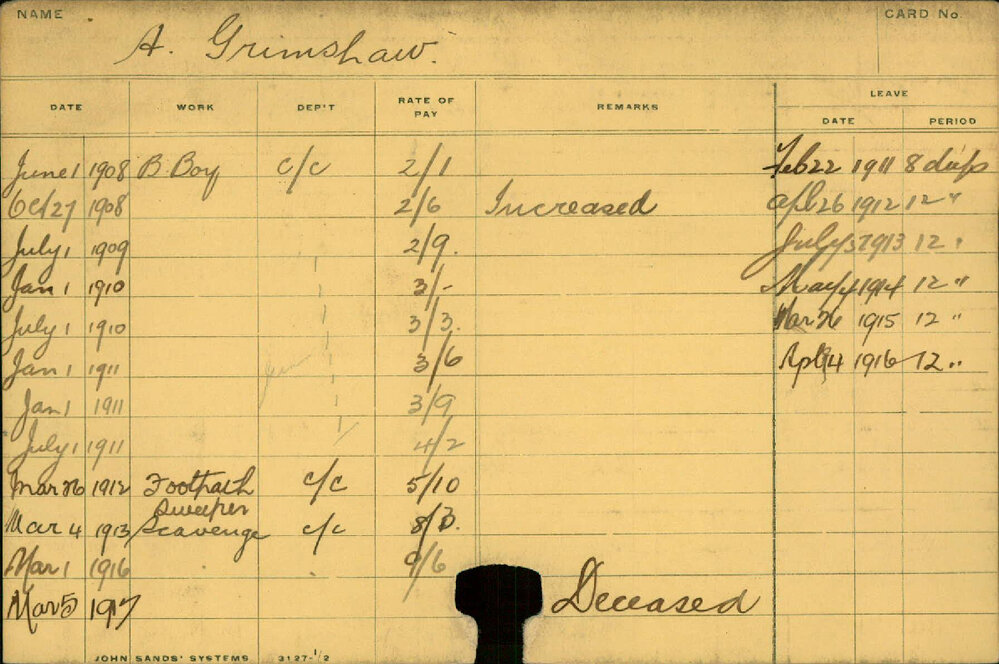 NAME A. Grimshaw. CARD No.
DATE WORK DEP'T RATE OF PAY REMARKS LEAVE
DATE PERIOD
June 1 1908 B Boy C/C 2/1 Feb 22 1911 8 days
Oct 27 1908 2/6 Increased Apl 26 1912 12 "
July 1 1909 2/9. July 1913 12 "
Jan 1 1910 3/- May 4 1914 12 "
July 1 1910 3/3. Mar 26 1915 12 "
Jan 1 1911 3/6 Apl 4 1916 12 "
Jan 1 1911 3/9
July 1 1911 4/2
Mar 26 1912 Footpath Sweeper C/C 5/10
Mar 4 1913 Scavenge C/C 8/3.
Mar 1 1916 9/6
Mar 5 1917 Deceased
JOHN SANDS' SYSTEMS 3127-1/2